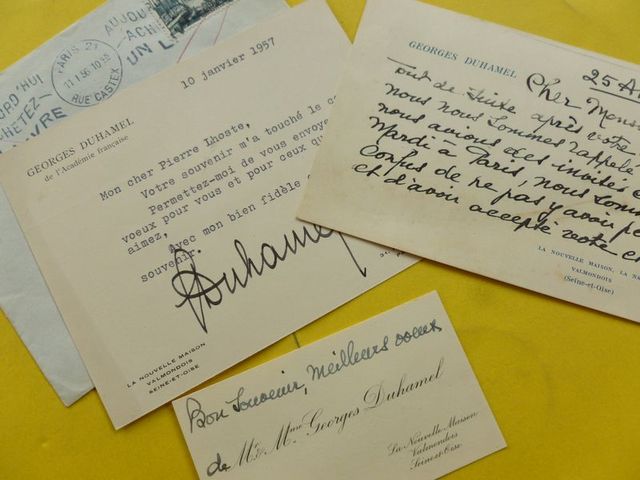 AUJOU
ACH
UN L
RD'HUI
HETEZ-
IVRE
PARIS 21
11-1 56
RUE CASTEX
10 janvier 1957
GEORGES DUHAMEL
de l'Académie française
Mon cher Pierre Lhoste,
Votre souvenir m'a touché le co
Permettez-moi de vous envoye
voeux pour vous et pour ceux qu
aimez,
Avec mon bien fidèle
souvenir.
Duhamel
LA NOUVELLE MAISON
VALMONDOIS
SEINE-ET-OISE
GEORGES DUHAMEL
25 A
Cher Mons
Tout de suite après votre
nous nous sommes rappelé
nous avions des invités
Mardi à Paris, nous somm
confus de ne pas y avoir pe
et d'avoir accepté votre
LA NOUVELLE MAISON, LA NA
VALMONDOIS
(Seine-et-Oise)
Bon souvenir, meilleurs voeux
de Mr. Mme Georges Duhamel
La Nouvelle Maison
Valmondois
Seine et Oise